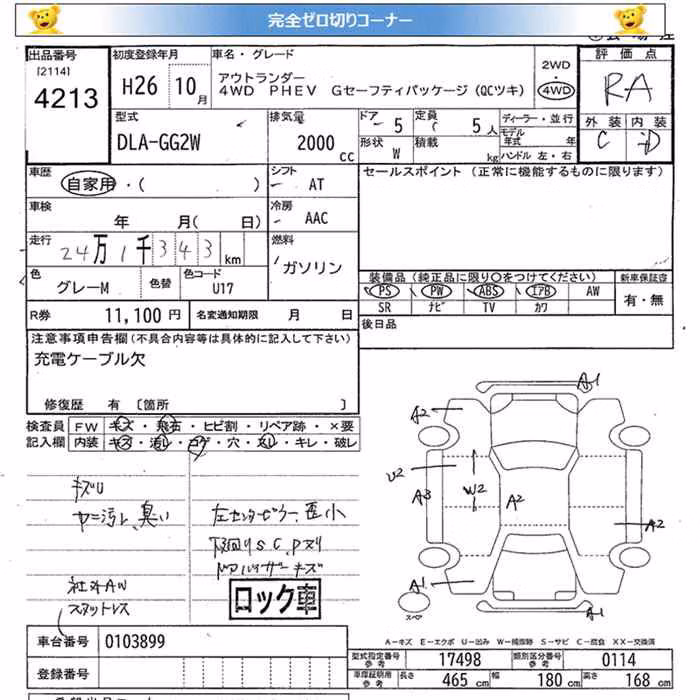 完全ゼロ切りコーナー
出品番号
[2114]
4213
初度登録年月
H26 10月
車名・グレード
アウトランダー
4WD PHEV Gセーフティパッケージ(QCツキ)
2WD
・
4WD
評価点
RA
外装 内装
C D
型式
DLA-GG2W
排気量
2000 cc
ドア 5
形状 W
定員 5人
積載 kg
ディーラー・並行
モデル年式 年
ハンドル 左・右
車歴
自家用・( )
シフト
AT
セールスポイント (正常に機能するものに限ります)
車検
年 月( 日)
冷房
AAC
走行
24万1千343km
燃料
ガソリン
色
グレーM
色替
色コード
U17
装備品(純正品に限り〇をつけてください)
PS PW ABS エアB AW
SR ナビ TV カワ
新車保証書
有・無
R券 11,100円
名変通知期限 月 日
後日品
注意事項申告欄(不具合内容等は具体的に記入して下さい)
充電ケーブル欠
修復歴 有 [箇所 ]
検査員記入欄
FW キズ・飛石・ヒビ割・リペア跡・×要
内装 キズ・汚レ・コゲ・穴・スレ・キレ・破レ
キズU
ヤニ汚レ、臭い
左センターピラー歪小
下回りS C、Pズリ
ドアバイザーキズ
社外AW
スタットレス
ロック車
A1
A2
U2
A3
W2
A2
A2
A1
A1
スペア
A-キズ E-エクボ U-凹み W-補修跡 S-サビ C-腐食 XX-交換済
車台番号 0103899
登録番号
型式指定番号
参考
17498
類別区分番号
参考
0114
車庫証明用
参考
長さ 465cm 幅 180cm 高さ 168cm